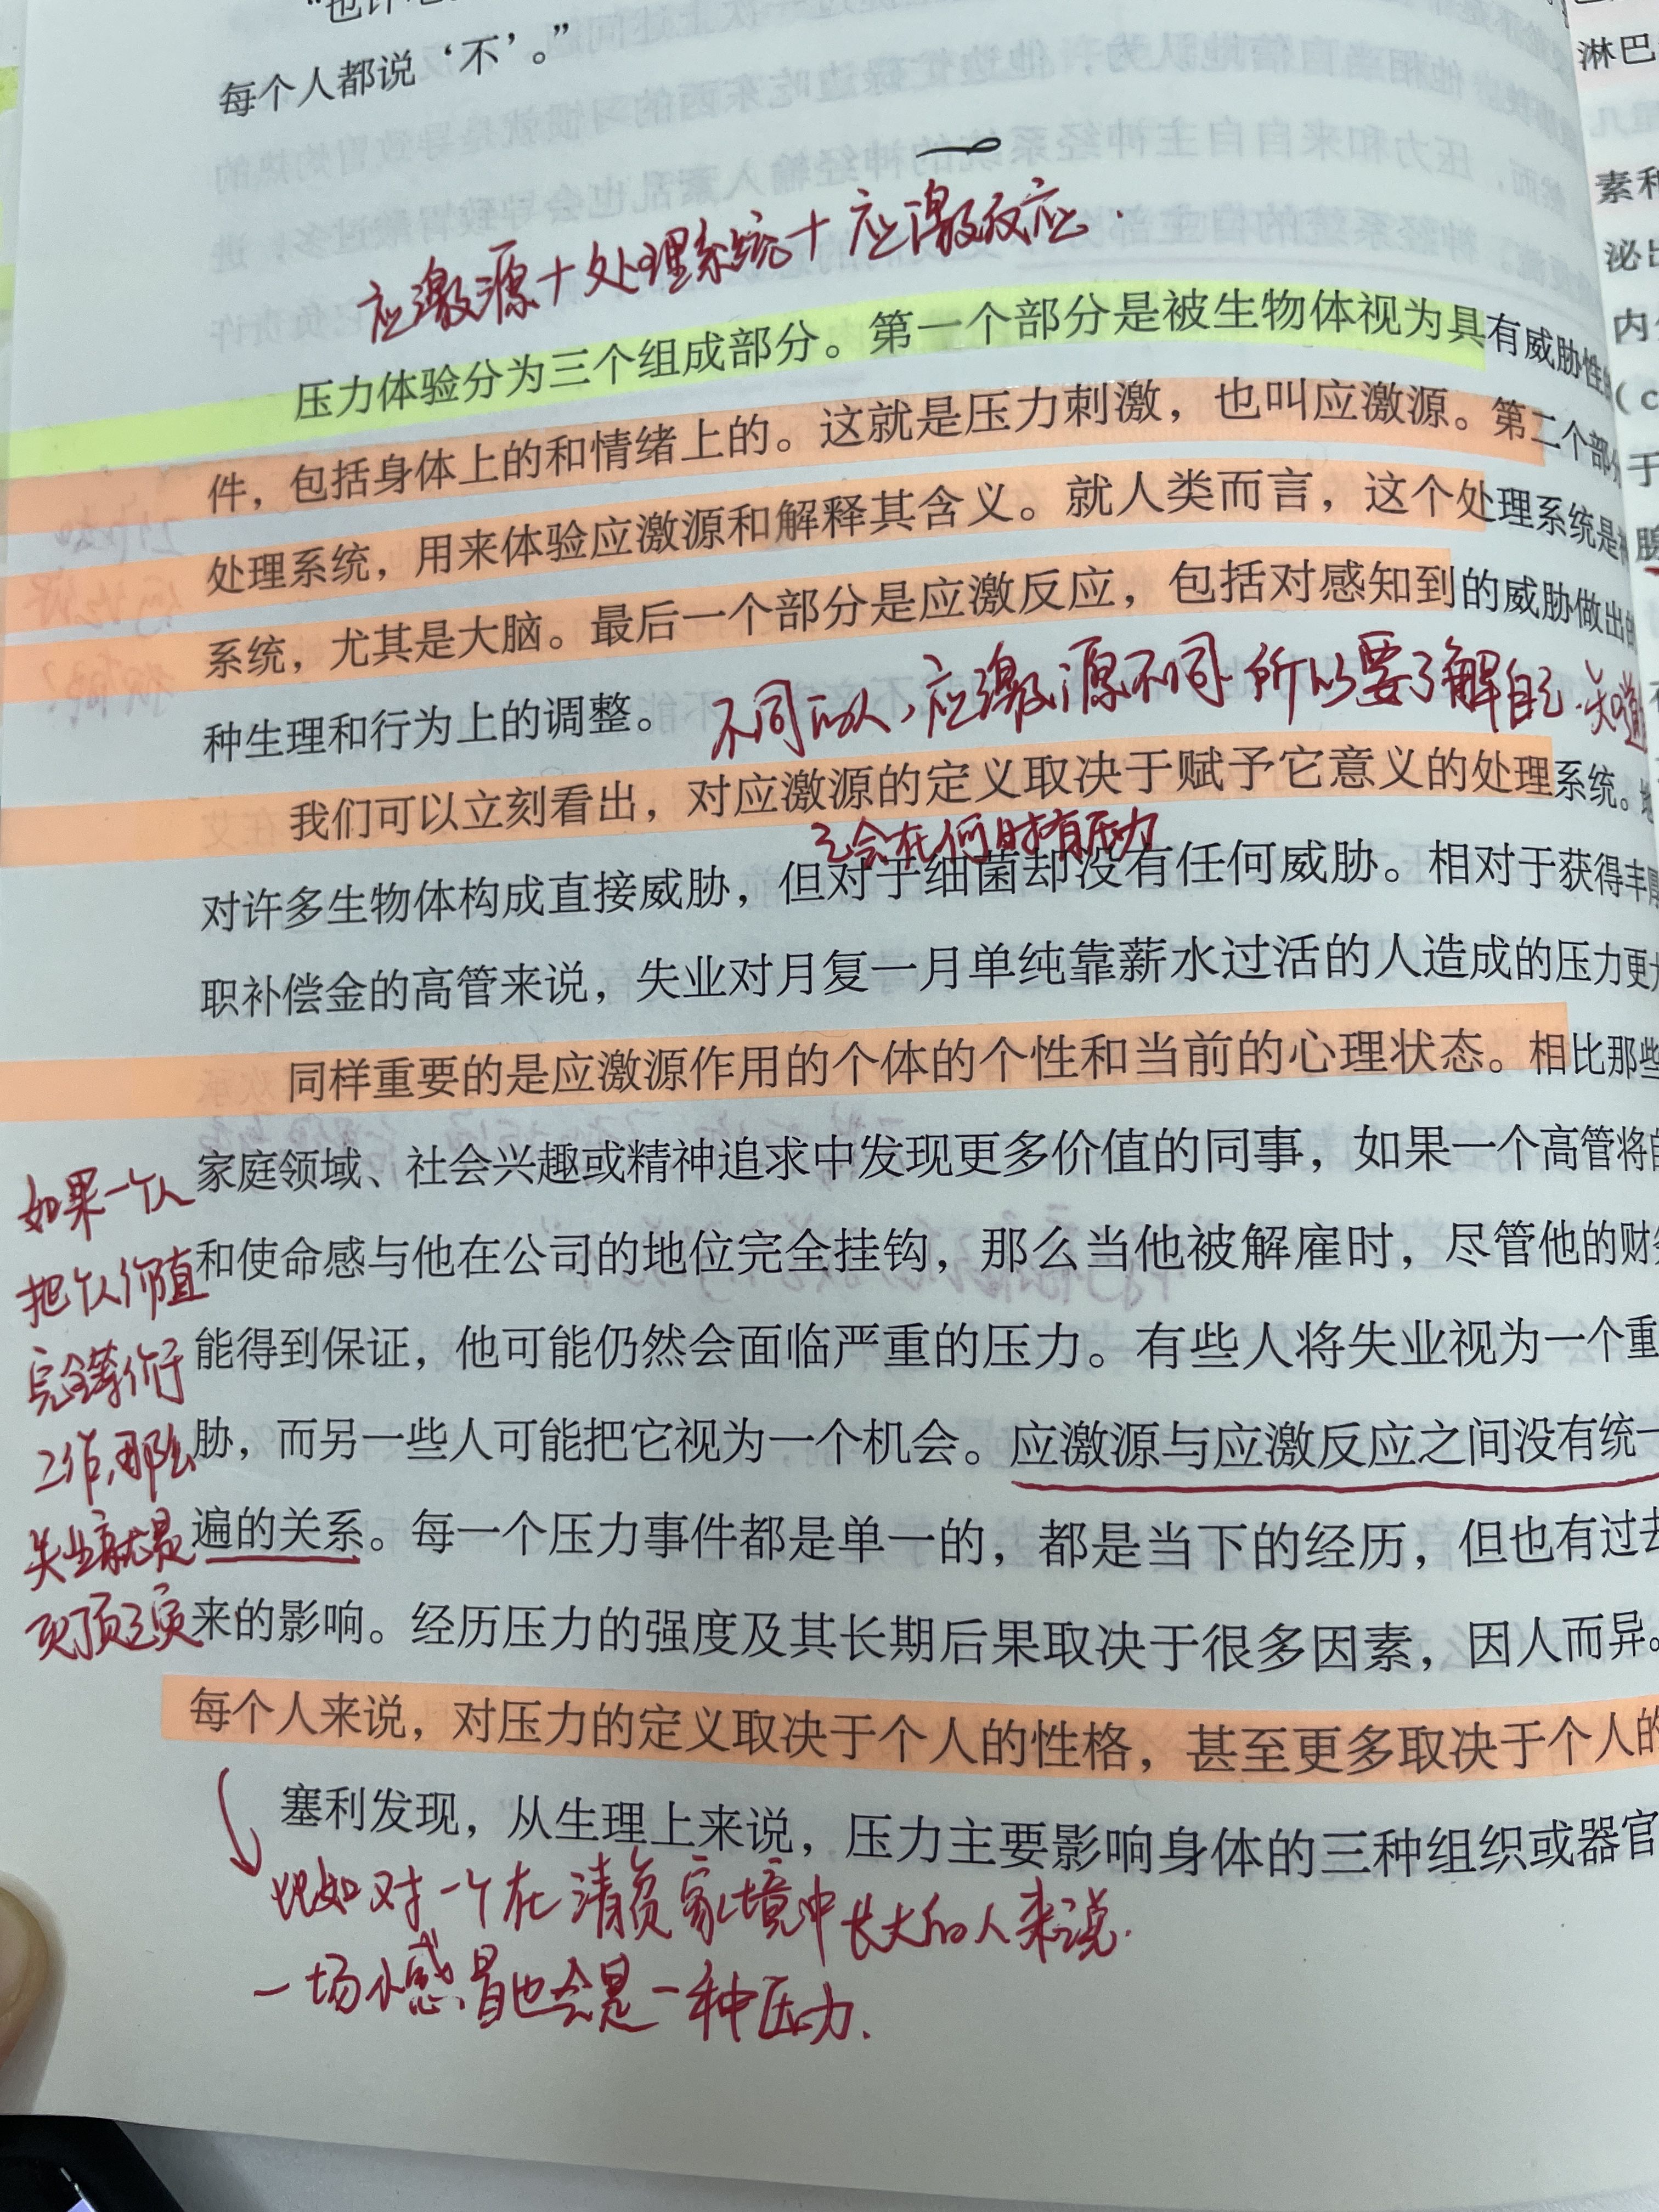 每个人都说‘不’。”
应激源+处理系统+应激反应.
压力体验分为三个组成部分。第一个部分是被生物体视为具有威胁性的
件，包括身体上的和情绪上的。这就是压力刺激，也叫应激源。第二个部分
处理系统，用来体验应激源和解释其含义。就人类而言，这个处理系统是神
系统，尤其是大脑。最后一个部分是应激反应，包括对感知到的威胁做出的
种生理和行为上的调整。
不同的人，应激源不同.所以要了解自己.知道
我们可以立刻看出，对应激源的定义取决于赋予它意义的处理系统。地
己会在何时有压力
对许多生物体构成直接威胁，但对于细菌却没有任何威胁。相对于获得丰厚
职补偿金的高管来说，失业对月复一月单纯靠薪水过活的人造成的压力更大
同样重要的是应激源作用的个体的个性和当前的心理状态。相比那些
家庭领域、社会兴趣或精神追求中发现更多价值的同事，如果一个高管将
和使命感与他在公司的地位完全挂钩，那么当他被解雇时，尽管他的财
能得到保证，他可能仍然会面临严重的压力。有些人将失业视为一个重
胁，而另一些人可能把它视为一个机会。应激源与应激反应之间没有统一
遍的关系。每一个压力事件都是单一的，都是当下的经历，但也有过去
来的影响。经历压力的强度及其长期后果取决于很多因素，因人而异。
每个人来说，对压力的定义取决于个人的性格，甚至更多取决于个人的
塞利发现，从生理上来说，压力主要影响身体的三种组织或器官
如果一个人
把个人价值
完全等价于
工作,那么
失业就是
灭顶之灾
比如对一个在清贫家境中长大的人来说.
一场小感冒也会是一种压力.
淋巴
素和
泌出
内分
(c
于
腺